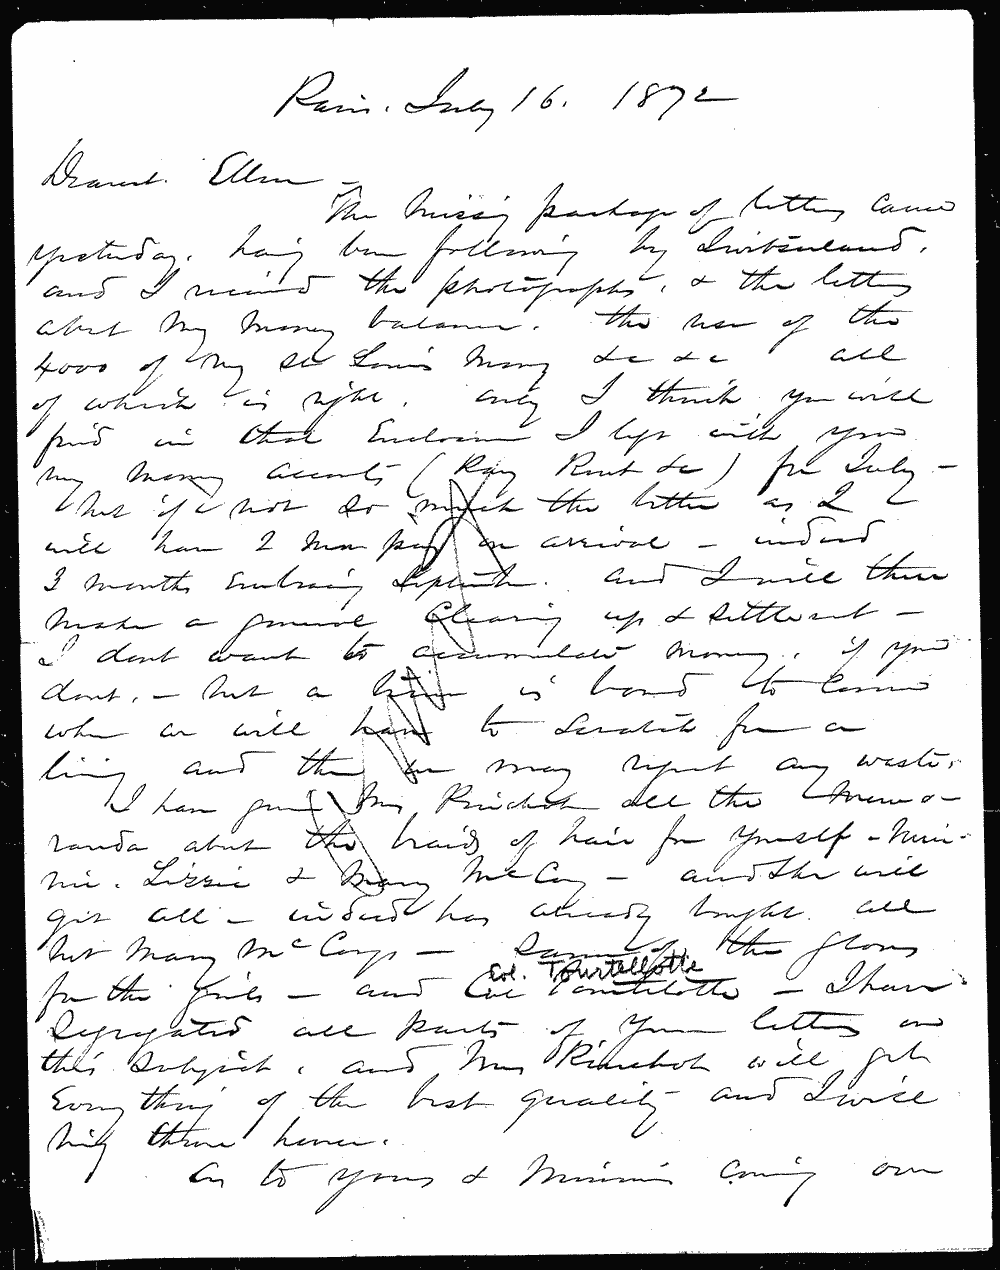 Paris. July 16. 1872
Dearest Ellen —
The missing package of letters came
yesterday. having been following by Switzerland.
and I received the photographs, & the letters
about my money balance. the use of the
4000 of my St Louis money &c &c all
of which is right. only I think you will
find in that Enclosure I left with you
my money accounts (Pay Rent &c) for July —
but if not so much the better as I
will have 2 mos pay on arrival — indeed
3 months Embracing September. and I will then
make a general Clearing up & settlement —
I dont want to accumulate money, if you
dont. — but a time is bound to Come
when we will have to scratch for a
living and then we may regret any waste.
I have given Mrs Pinchot all the memo-
randa about the braids of hair for yourself - Min-
nie. Lizzie & Mary McCoy — and she will
get all — indeed has already bought all
but Mary McCoys — Same of the gloves
Col. Tourtellotte
for the Girls — and Col Tourtelotte — I have
Segregated all parts of Your letters on
this subject, and Mrs Pinchot will get
Every thing of the best quality and I will
bring them home.
As to yours & Minnies Coming over